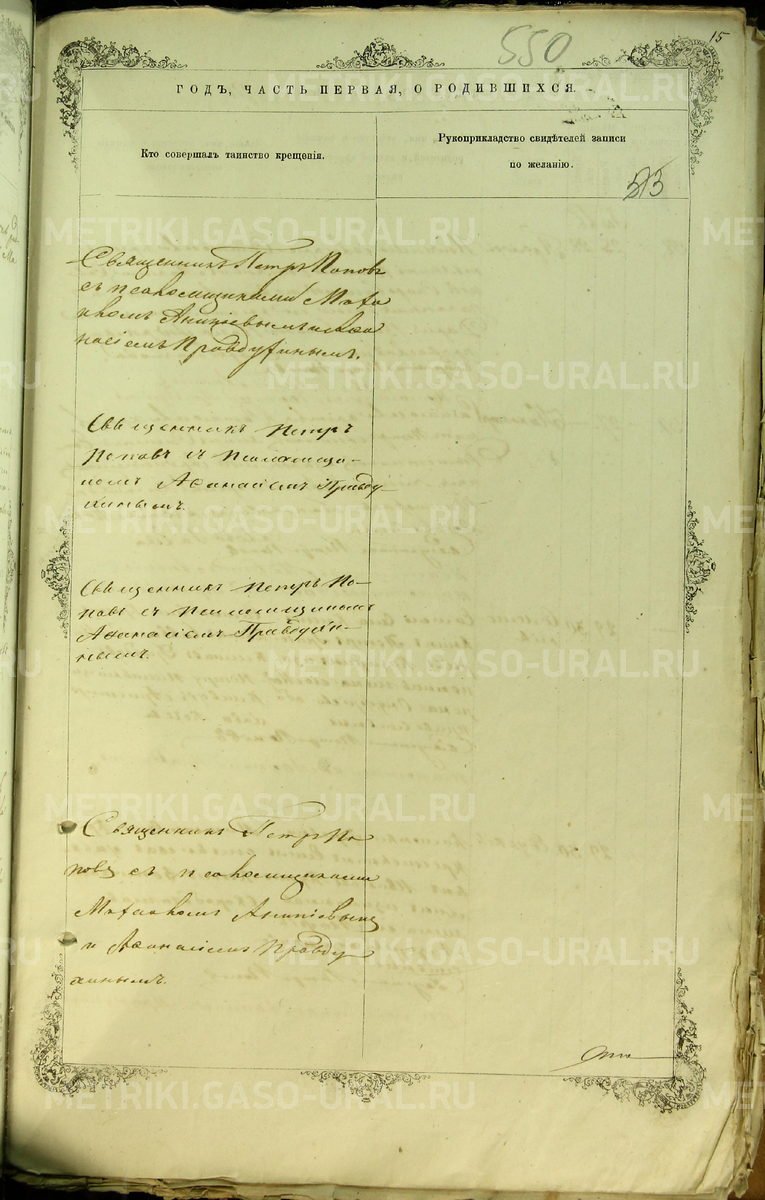 15
550
ГОДЪ, ЧАСТЬ ПЕРВАЯ, О РОДИВШИХСЯ.
Кто совершалъ таинство крещенія.
Рукоприкладство свидѣтелей записи
по желанію.
Священникъ Петръ Поповъ
съ псаломщиками
Ананіевымъ
Правдухинымъ.
Священникъ Петръ
Поповъ съ Псаломщи-
комъ Аѳанасіемъ Правду-
хинымъ.
Священникъ Петръ По-
повъ съ Псаломщикомъ
Аѳанасіемъ Правдухи-
нымъ.
Священникъ Петръ По
повъ съ псаломщиками
и Аѳанасіемъ Правду
хинымъ.
METRIKI.GASO-URAL.RU